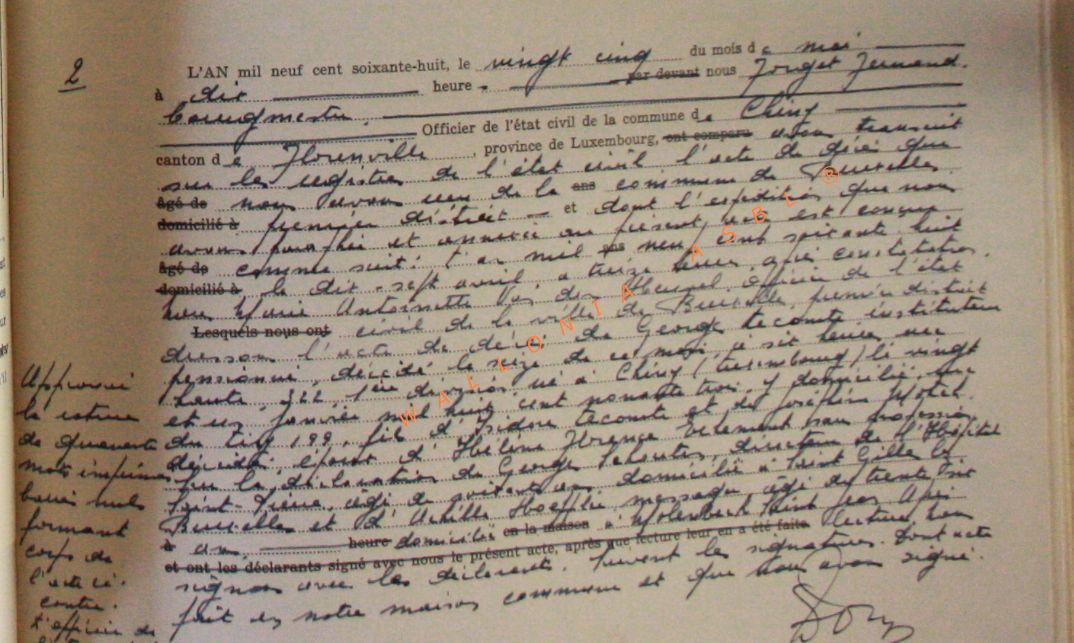 2
L'AN mil neuf cent soixante-huit, le vingt cinq du mois de mai
à dix heure par devant nous Forget Fernand.
bourgmestre. Officier de l'état civil de la commune de Chiny
canton de Florenville, province de Luxembourg, ont comparu avons transcrit
sur les registres de l'état civil l'acte de que
âgé de nous avons reçu de la ans commune de Bruxelles
domicilié à premier district et dont l'expédition que nous
avons paraphée et annexée au présent acte est conçue
âgé de comme suit: l'an mil ans neuf cent soixante huit
domicilié à le dix-sept avril, à treize heures, après constatation,
nous Marie Antoinette Van den Heuvel officier de l'état
Lesquels nous ont civil de la ville de Bruxelles, premier district
dressons l'acte de décès de George Lecomte instituteur
pensionné, décédé le seize de ce mois à six heures, rue
haute, 322 1ère division né à Chiny (Luxembourg) le vingt
et un janvier mil huit cent nonante trois, y domicilié, rue
du 199, fils d'Isidore Lecomte et de Joséphine
décédés, époux d'Hélène Florence sans profession.
Sur la déclaration de George directeur de l'Hôpital
Saint-Pierre, âgé de soixante ans domicilié à Saint Gilles lez
Bruxelles et d'Achille messager âgé de trente six
à ans, heure domicilié en la maison à Molenbeek Saint Jean Après
et ont les déclarants signé avec nous le présent acte, après que lecture leur en a été faite. lecture nous
signons avec les déclarants. Suivent les signatures. Dont acte
fait en notre maison commune et que nous avons signé.
Approuvé
la rature
de quarante
mots imprimés
barrés nuls
formant
corps de
l'acte ci-
contre.
L'officier de
WALLONIA ASBL